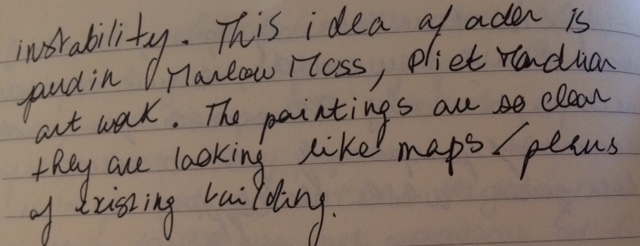 instability. This idea of order is
found in Marlow Moss, Piet Mondrian
art work. The paintings are so clear
they are looking like maps/plans
of existing building.